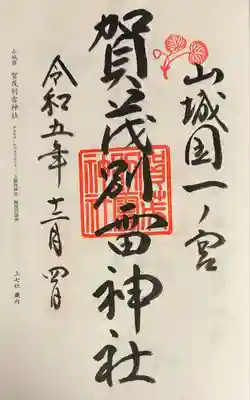 山城国一ノ宮
賀茂別雷神社
令和五年十二月四日
山城国 賀茂別雷神社